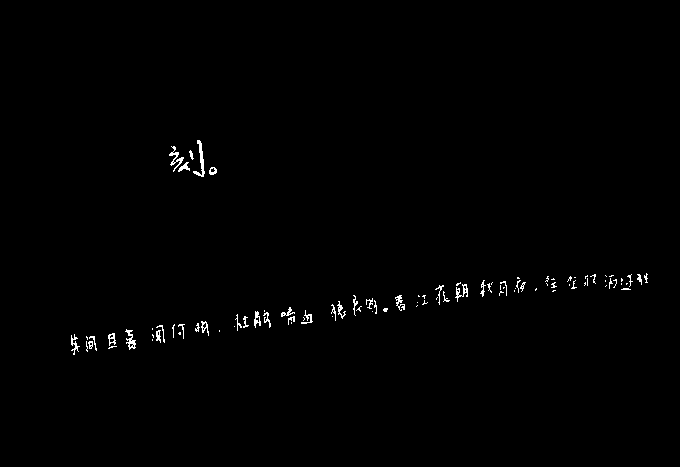 刻。
其间旦暮闻何物，杜鹃啼血猿哀鸣。春江花朝秋月夜，往往取酒还独